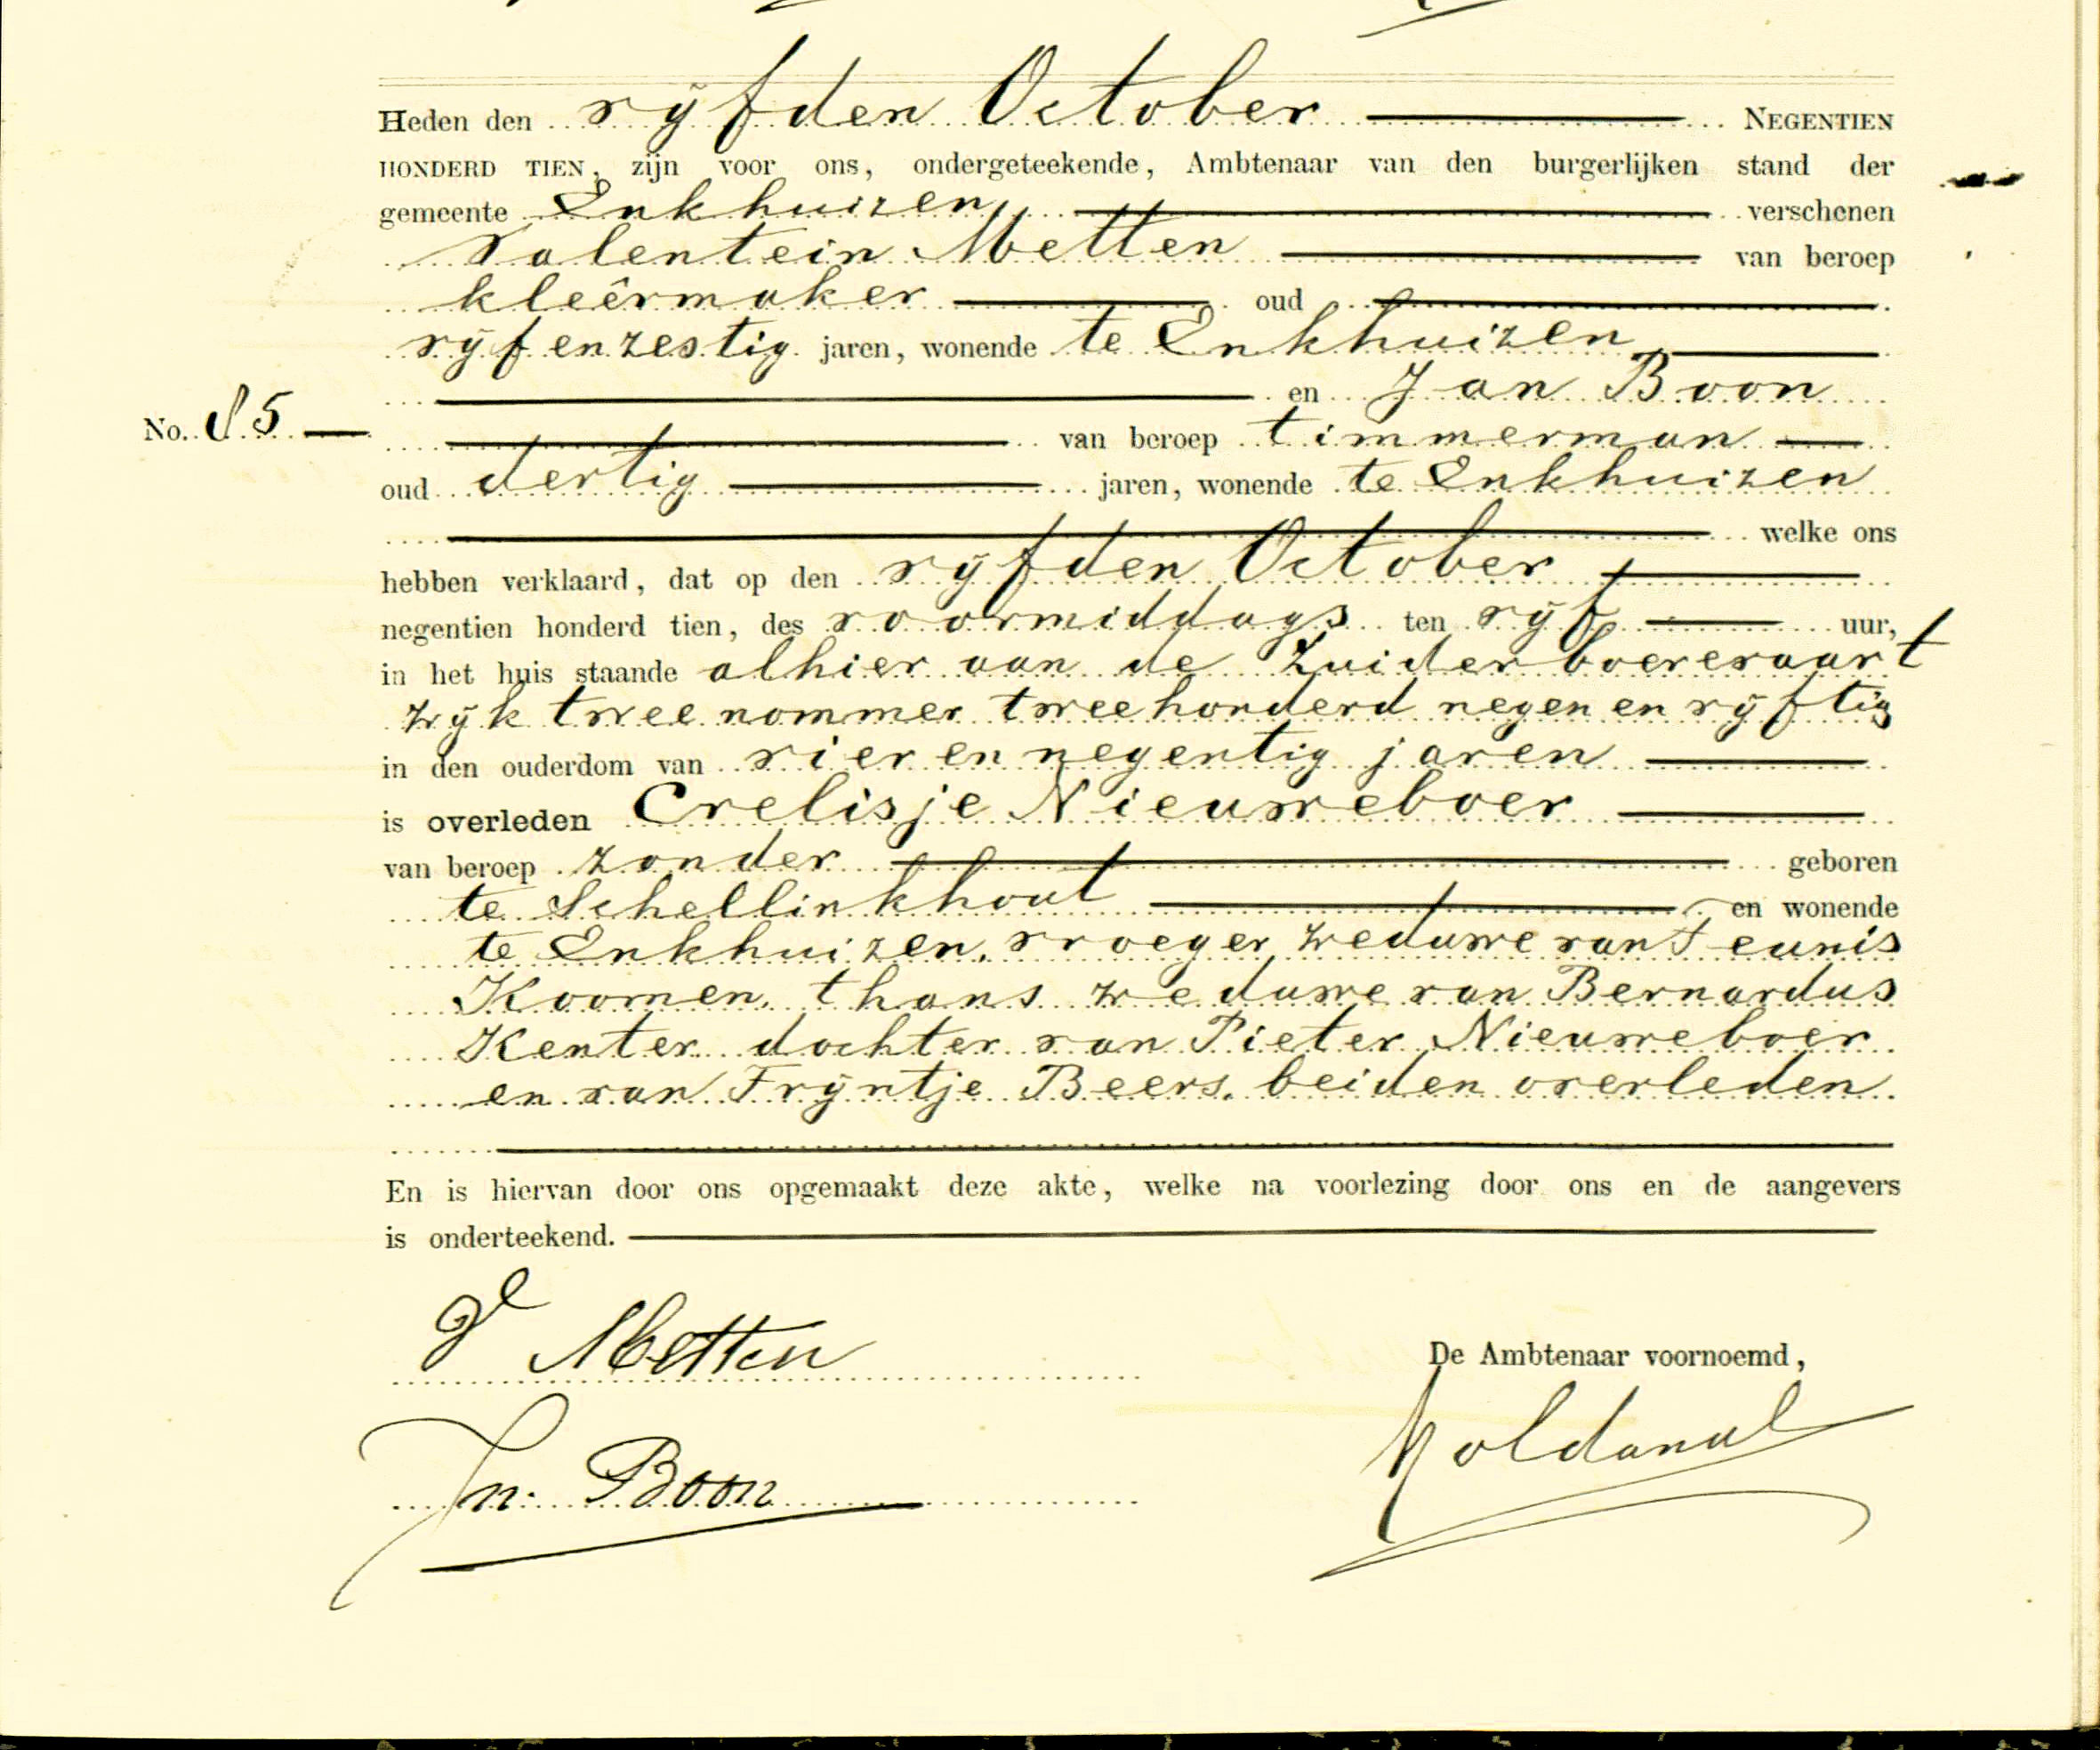 Heden den vijfden October NEGENTIEN
HONDERD TIEN, zijn voor ons, ondergeteekende, Ambtenaar van den burgerlijken stand der
gemeente Enkhuizen, verschenen
Valentein Metten van beroep
kleêrmaker oud
vijfenzestig jaren, wonende te Enkhuizen
en Jan Boon
No. 85 van beroep timmerman
oud dertig jaren, wonende te Enkhuizen
welke ons
hebben verklaard, dat op den vijfden October
negentien honderd tien, des voormiddags ten vijf uur,
in het huis staande alhier aan de Zuider boerevaart
wijk twee nommer tweehonderd negen en vijftig
in den ouderdom van vier en negentig jaren
is overleden Crelisje Nieuweboer
van beroep zonder geboren
te Schellinkhout en wonende
te Enkhuizen, vroeger weduwe van Teunis
Koomen, thans weduwe van Bernardus
Kenter dochter van Pieter Nieuweboer
en van Trijntje Beers, beiden overleden.
En is hiervan door ons opgemaakt deze akte, welke na voorlezing door ons en de aangevers
is onderteekend.
Metten
De Ambtenaar voornoemd,
Jn. Boon